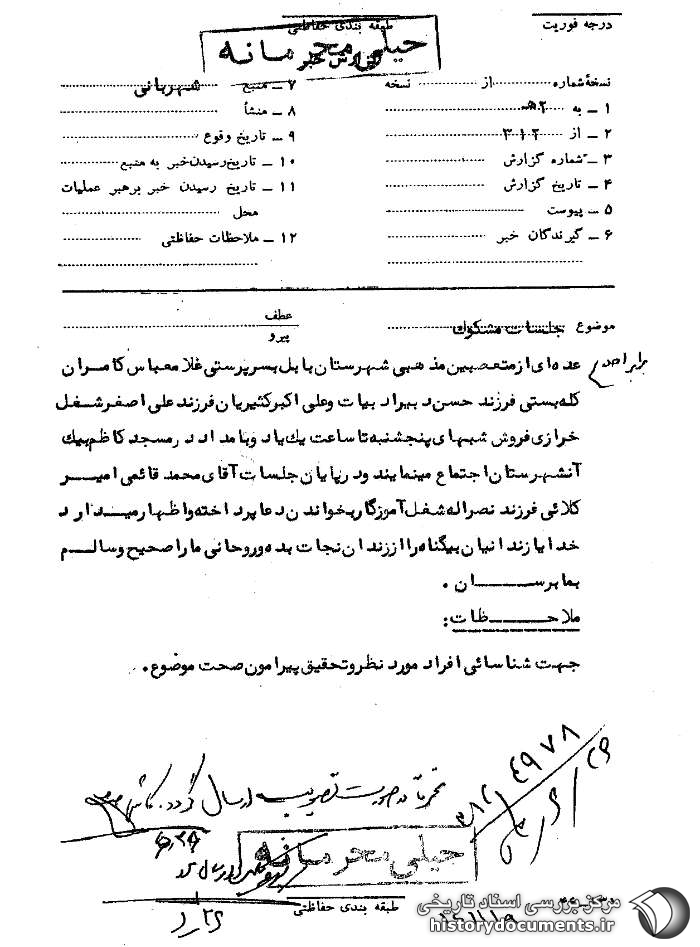 درجه فوریت
طبقه بندی حفاظتی
خیلی محرمانه
گزارش خبر
نسخهٔ شماره .......... از .......... نسخه
۱ ــ به ۳۲ه
۲ ــ از ۳۱۲
۳ ــ شماره گزارش
۴ ــ تاریخ گزارش
۵ ــ پیوست
۶ ــ گیرندگان خبر
۷ ــ منبع شهربانی
۸ ــ منشأ
۹ ــ تاریخ وقوع
۱۰ ــ تاریخ رسیدن خبر به منبع
۱۱ ــ تاریخ رسیدن خبر برهبر عملیات
محل
۱۲ ــ ملاحظات حفاظتی
موضوع جلسات مشکوک
عطف
پیرو
برابر
عده‌ای از متعصبین مذهبی شهرستان بابل بسرپرستی غلامعباس کامران
کله‌بستی فرزند حسن دبیر ادبیات و علی اکبر کثیریان فرزند علی اصغر شغل
خرازی فروش شبهای پنجشنبه تا ساعت یک یا دو بامداد در مسجد کاظم بیک
آنشهرستان اجتماع مینمایند و در پایان جلسات آقای محمد قائمی امیر
کلائی فرزند نصراله شغل آموزگار بخواندن دعا پرداخته و اظهار میدارد
خدایا زندانیان بیگناه را از زندان نجات بده و روحانی ما را صحیح و سالم
بما برسان .
ملاحظات:
جهت شناسائی افراد مورد نظر و تحقیق پیرامون صحت موضوع .
در صورت تصویب ارسال گردد
۴۹۷۸
۳۸۲
خیلی محرمانه
طبقه بندی حفاظتی
مرکز بررسی اسناد تاریخی
historydocuments.ir